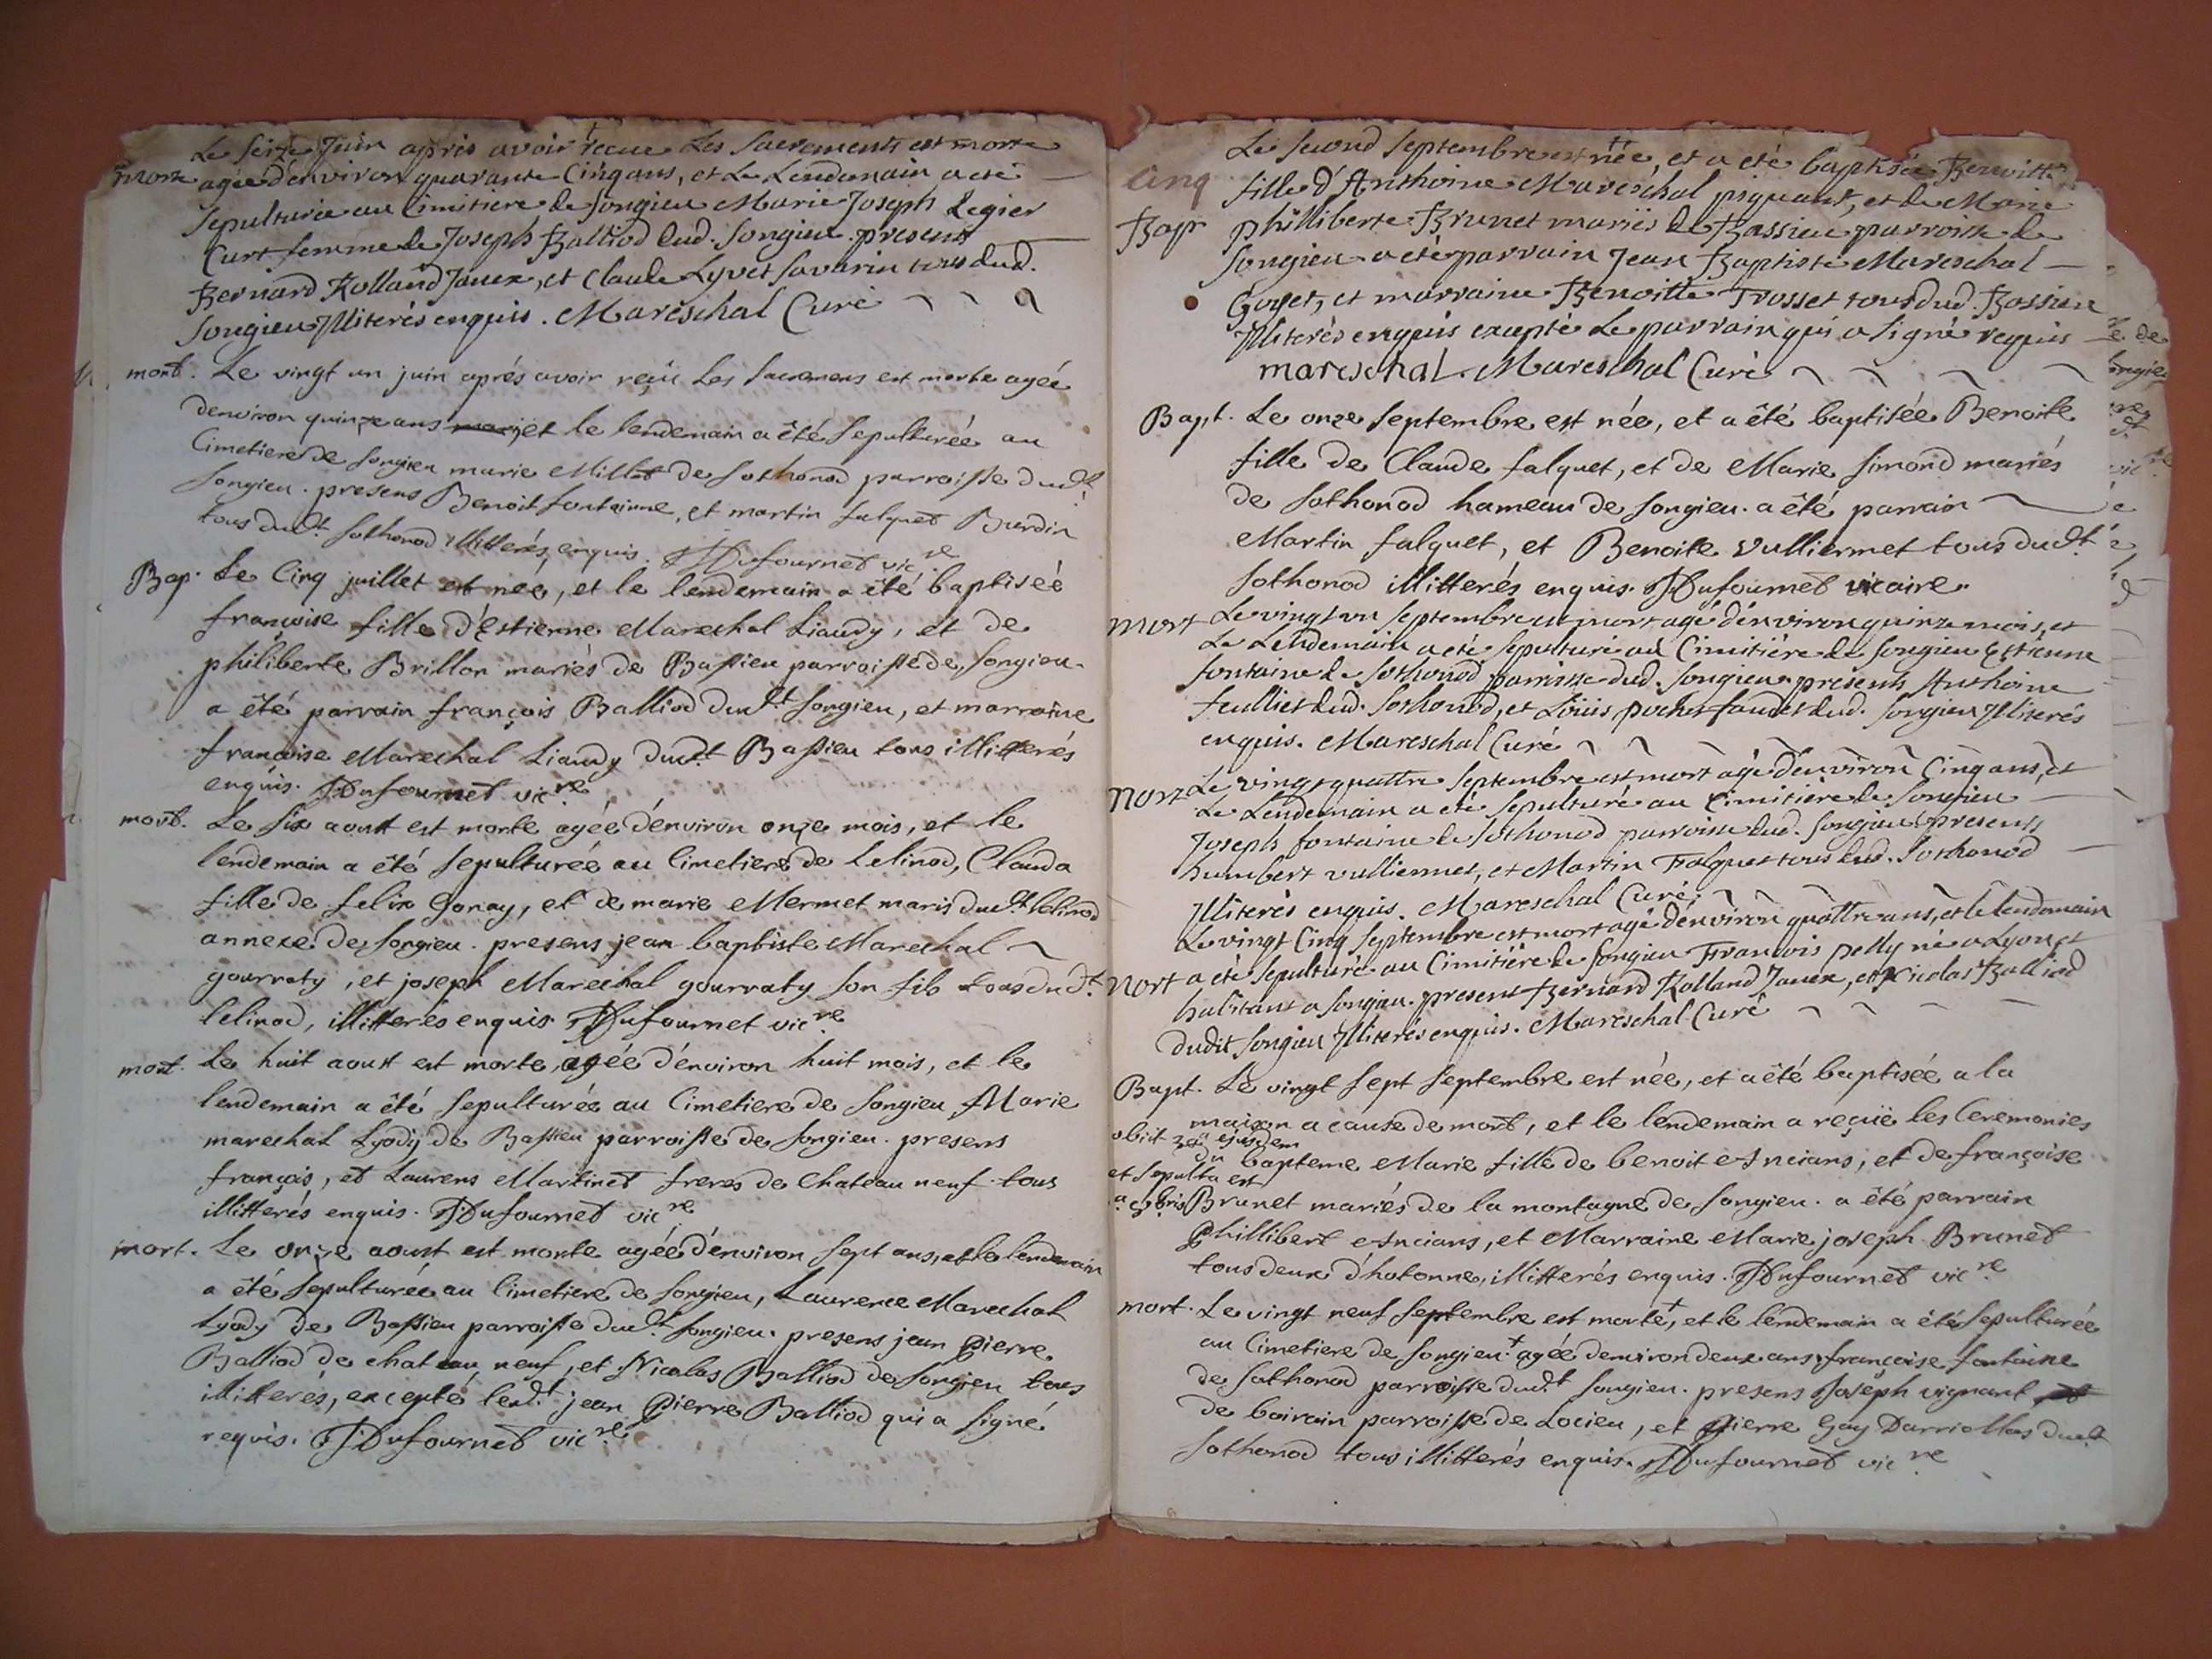 Le Seize Juin après avoir recue Les Sacrements est morte
morte agée d'environ quarante Cinq ans, et Le Lendemain a eté
sepulturée au Cimitiere de Songieu Marie Joseph Legier
Curt femme de Joseph Balliod dud. Songieu. presents
Bernard Rolland Janex, et Claude Lyvet Savarin tous dud.
Songieu Illiterés enquis. Mareschal Curé
mort. Le vingt un juin aprés avoir reçüe les Sacremens est morte agée
denviron quinze ans et le lendemain a êté Sepulturée au
Cimetiere de Songieu marie Millet de Sothonod parroisse dud.t
Songieu. presens Benoit fontainne, et martin falquet Burdin
tous dud.t Sothonod illitterés enquis. JDufournet vic.re
Bap. Le Cinq juillet est neé, et le lendemain a êté baptiseé
françoise fille d'Estienne Marechal Liaudy, et de
philiberte Brillon mariés de Bassieu parroisse de Songieu.
a êté parrain françois Balliod dud.t Songieu, et marraine
françoise Marechal Liaudy dud.t Bassieu tous illitterés
enquis. JDufournet vic.re
mort. Le Six aoust est morte agée d'environ onze mois, et le
lendemain a êté Sepulturée au Cimetiere de Lelinod, Clauda
fille de felix Gonay, et de marie Mermet mariés dud.t lelinod
annexe de Songieu. presens jean baptiste Marechal
gourraty, et joseph Marechal gourraty Son fils tous dud.t
lelinod, illitterés enquis. JDufournet vic.re
mort. Le huit aoust est morte, agée d'environ huit mois, et le
lendemain a êté Sepulturée au Cimetiere de Songieu Marie
marechal Lyody de Bassieu parroisse de Songieu. presens
françois, et Laurens Martinet freres de Chateau neuf tous
illitterés enquis. JDufournet vic.re
mort. Le onze aoust est morte agée d'environ Sept ans, et le lendemain
a êté Sepulturée au Cimetiere de Songieu, Laurence Marechal
Lyody de Bassieu parroisse dud.t Songieu. presens jean pierre
Balliod de chateau neuf, et Nicolas Balliod de Songieu tous
illitterés, excepté led.t jean pierre Balliod qui a Signé
requis. JDufournet vic.re
Le Second Septembre est née, et a eté baptisée Benoitte
Cinq fille d'Anthoine Mareschal piquant, et de Marie
Bapt Philliberte Brunet mariés de Bassieu parroisse de
Songieu a eté parrain Jean Baptiste Mareschal
Goyet, et marraine Benoitte Trosset tous dud. Bassieu
Illiterés enquis excepté Le parrain qui a signé requis
mareschal. Mareschal Curé
Bapt. Le onze Septembre est née, et a êté baptisée Benoite
fille de Claude falquet, et de Marie Simond mariés
de Sothonod hameau de Songieu. a êté parrain
Martin falquet, et Benoite Vulliermet tous dud.t
Sothonod illitterés enquis. JDufournet vicaire.
mort Le vingt un Septembre est mort agé d'environ quinze mois, et
Le Lendemain a eté Sepulturé au Cimitière de Songieu Estienne
fontaine de Sothonod parroisse dud. Songieu. presents Anthoine
feulliet dud. Sothonod, et Loüis pochet faudet dud. Songieu Illiterés
enquis. Mareschal Curé
Mort Le vingt quattre Septembre est mort agé d'environ Cinq ans, et
Le Lendemain a eté Sepulturé au Cimitiere de Songieu
Joseph fontaine de Sothonod parroisse dud. Songieu. presents
humbert vulliermet, et Martin Falquet tous dud. Sothonod
Illiterés enquis. Mareschal Curé.
Le vingt Cinq Septembre est mort agé d'environ quattre ans, et le lendemain
Mort a eté Sepulturé au Cimitière de Songieu François pelly né a Lyon et
habitant a Songieu. present Bernard Rolland Janex, et Nicolas Balliod
dudit Songieu Illiterés enquis. Mareschal Curé
Bapt. Le vingt Sept Septembre est née, et a êté baptisée a la
maison a cause de mort, et le lendemain a reçüe les Ceremonies
obiit ejusdem
du bapteme Marie fille de benoit Ancians, et de françoise
et Sepulta est
Brunet mariés de la montagne de Songieu. a êté parrain
Phillibert Ancians, et Marraine Marie joseph Brunet
tous deux d'hotonne, illitterés enquis. JDufournet vic.re
mort. Le vingt neuf Septembre est morte+, et le lendemain a été Sepulturée
au Cimetiere de Songieu.+ agée denviron deux ans françoise fontaine
de Sothonod parroisse dud.t Songieu. presens Joseph vignant
de boirain parroisse de Locieu, et pierre Gay Darriollas dud.t
Sothonod tous illitterés enquis. JDufournet vic.re